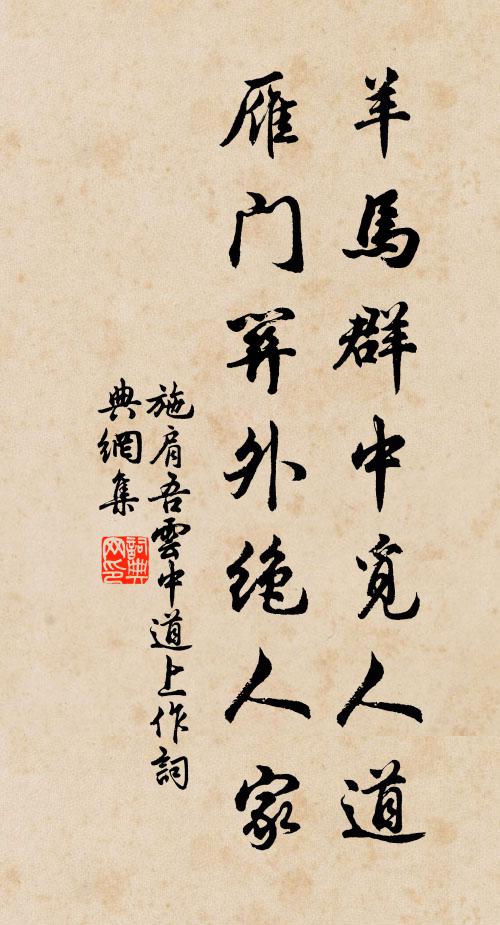 羊馬群中覓人道
雁门關外绝人家
施肩吾雲中道上作詞
典網集
詞典
网印